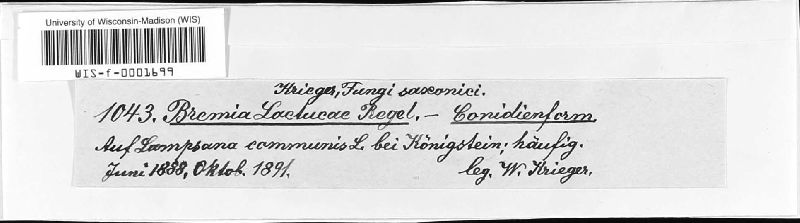 University of Wisconsin-Madison (WIS)
WIS-f-0001699
Krieger, Fungi saxonici.
1043. Bremia Lactucae Regel. — Conidienform.
Auf Lampsana communis L. bei Königstein; häufig.
Juni 1888, Oktob. 1891. leg. W. Krieger.